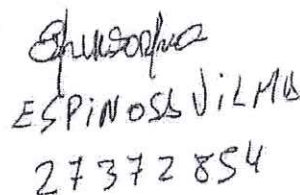 ESPINOSA VILMA
27372854